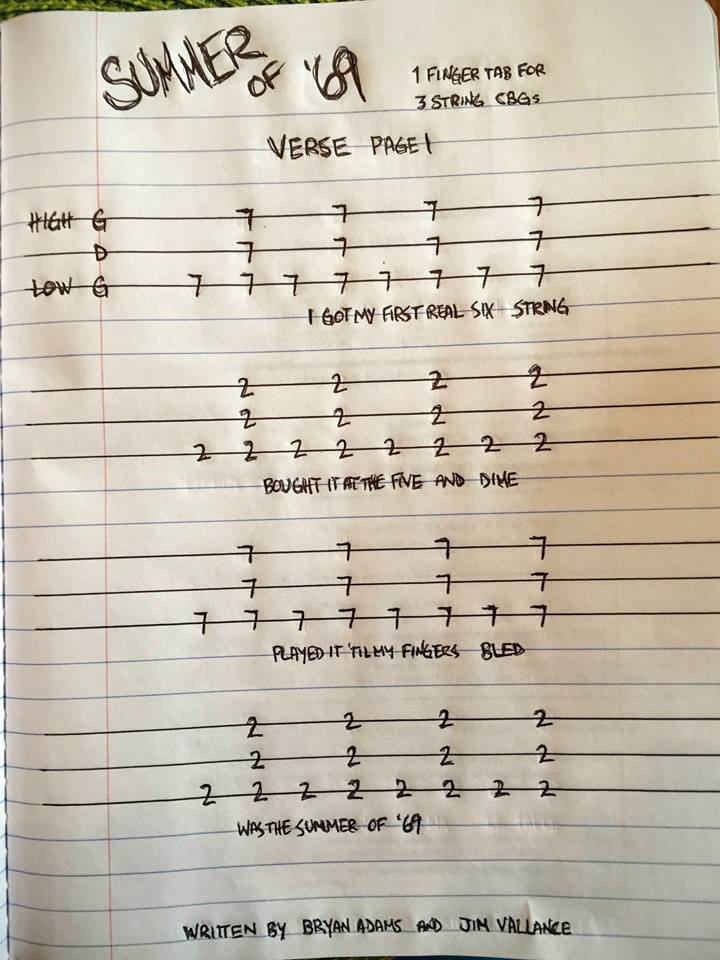 SUMMER OF '69
1 FINGER TAB FOR
3 STRING CBGs
VERSE PAGE 1
HIGH G 7 7 7 7
D 7 7 7 7
LOW G 7 7 7 7 7 7 7 7
I GOT MY FIRST REAL SIX STRING
2 2 2 2
2 2 2 2
2 2 2 2 2 2 2 2
BOUGHT IT AT THE FIVE AND DIME
7 7 7 7
7 7 7 7
7 7 7 7 7 7 7 7
PLAYED IT 'TIL MY FINGERS BLED
2 2 2 2
2 2 2 2
2 2 2 2 2 2 2 2
WAS THE SUMMER OF '69
WRITTEN BY BRYAN ADAMS AND JIM VALLANCE